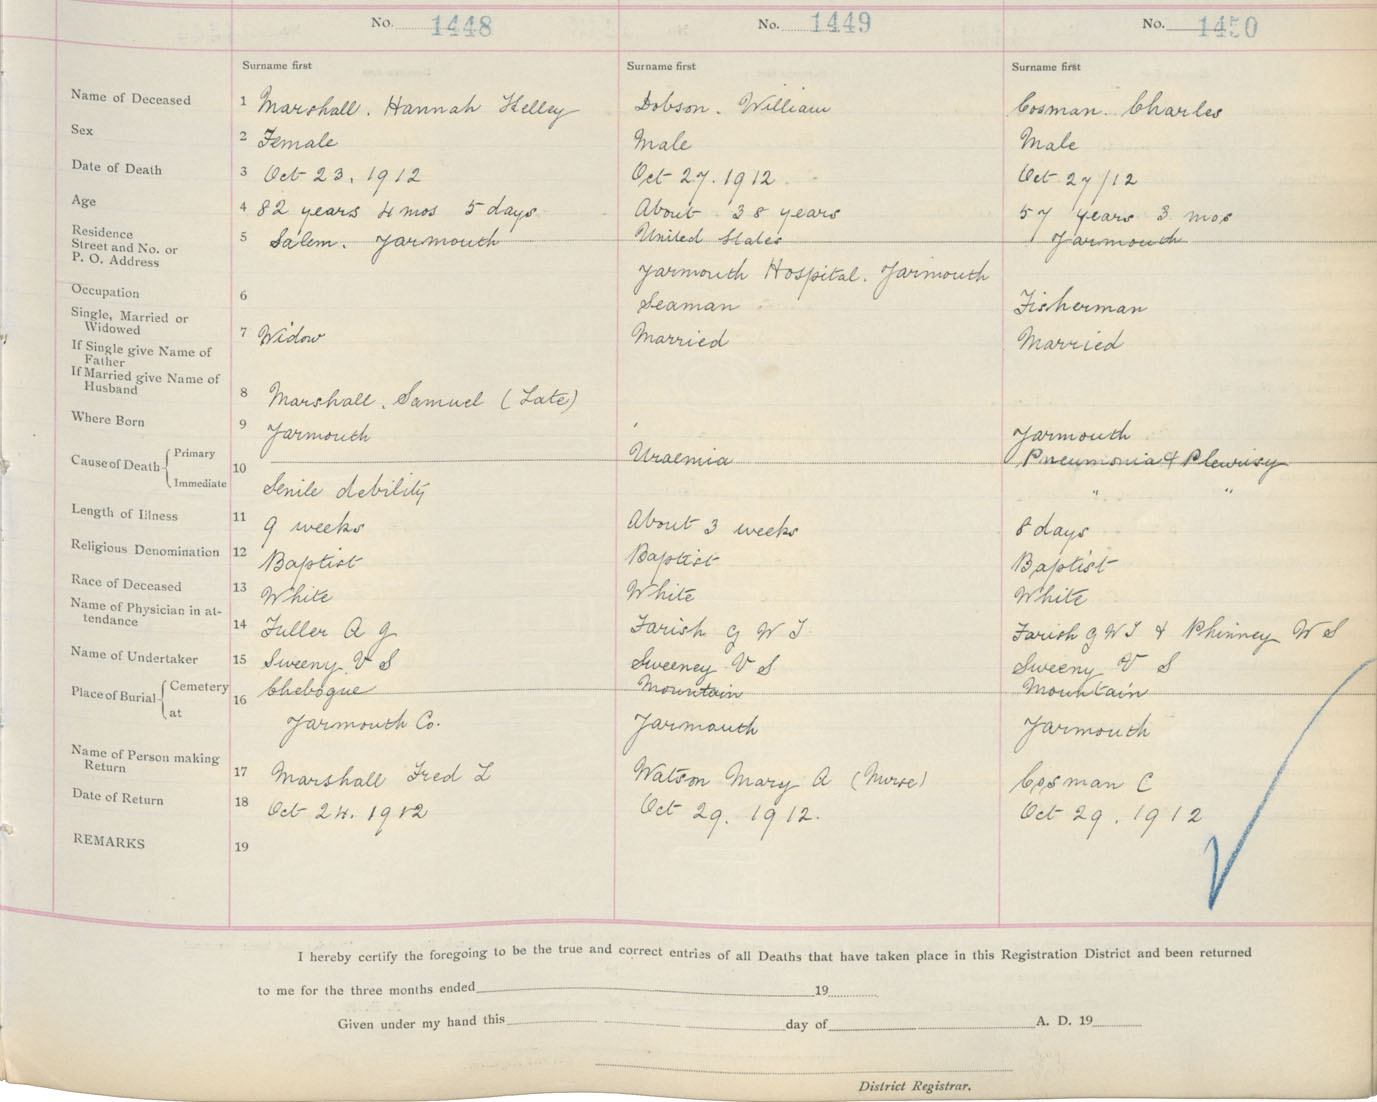 No. 1448 No. 1449 No. 1450
Surname first Surname first Surname first
Name of Deceased 1 Marshall. Hannah Kelley Dobson. William Cosman. Charles
Sex 2 Female Male Male
Date of Death 3 Oct 23. 1912 Oct 27. 1912 Oct 27/12
Age 4 82 years 4 mos 5 days About 38 years 57 years 3 mos
Residence
Street and No. or
P. O. Address 5 Salem. Yarmouth United States Yarmouth
Yarmouth Hospital. Yarmouth
Occupation 6 Seaman Fisherman
Single, Married or
Widowed 7 Widow Married Married
If Single give Name of
Father
If Married give Name of
Husband 8 Marshall. Samuel (Late)
Where Born 9 Yarmouth Yarmouth
Cause of Death Primary 10 Uraemia Pneumonia & Pleurisy
Immediate Senile debility " "
Length of Illness 11 9 weeks About 3 weeks 8 days
Religious Denomination 12 Baptist Baptist Baptist
Race of Deceased 13 White White White
Name of Physician in at-
tendance 14 Fuller A J Farish G W T Farish G W T & Phinney W S
Name of Undertaker 15 Sweeny V S Sweeney V S Sweeny V S
Place of Burial Cemetery 16 Chebogue Mountain Mountain
at Yarmouth Co. Yarmouth Yarmouth
Name of Person making
Return 17 Marshall Fred L Watson Mary A (Nurse) Cosman C
Date of Return 18 Oct 24. 1912 Oct 29. 1912. Oct 29. 1912
REMARKS 19
I hereby certify the foregoing to be the true and correct entries of all Deaths that have taken place in this Registration District and been returned
to me for the three months ended 19
Given under my hand this day of A. D. 19
District Registrar.